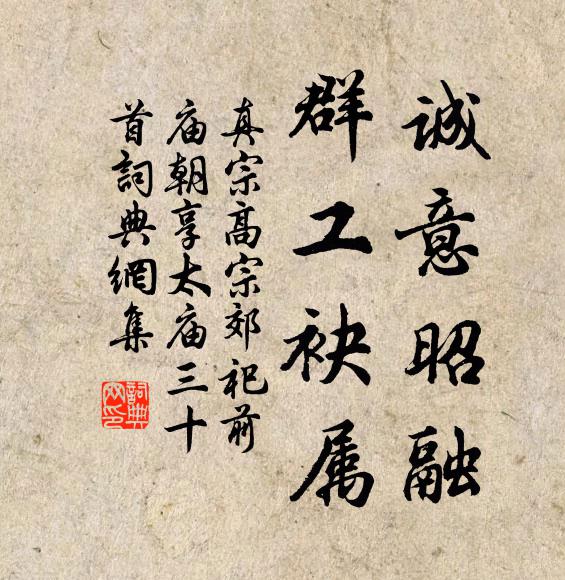 誠意昭融
群工袂属
真宗高宗郊祀前
庙朝享太庙三十
首詞典網集
詞典
网印